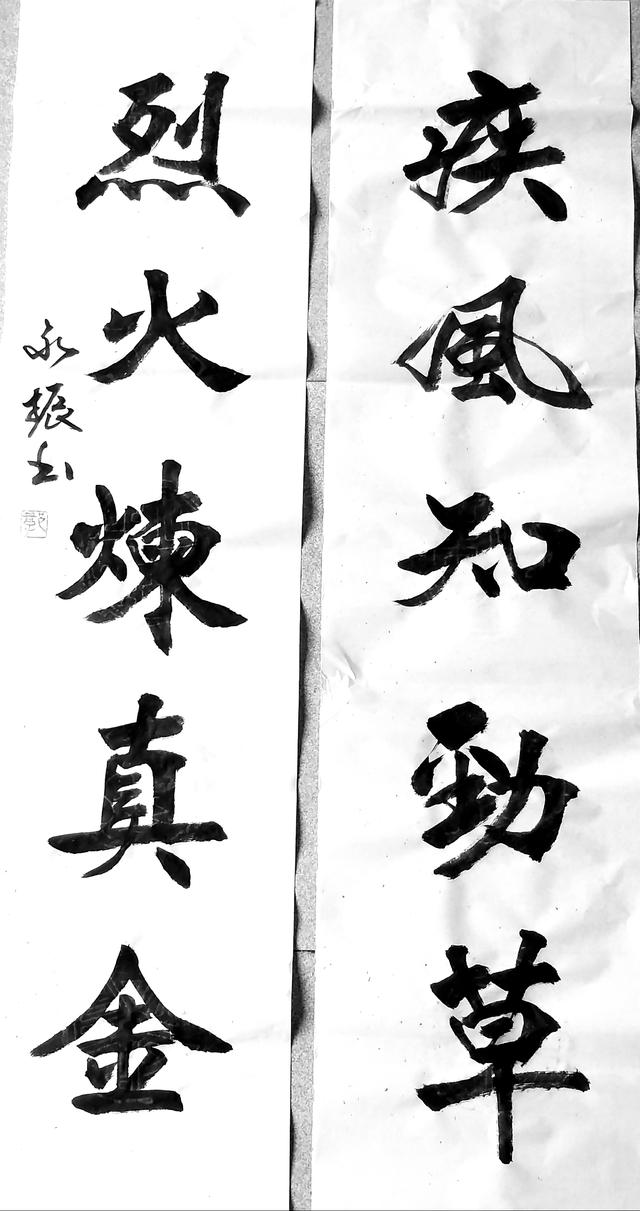 疾風知勁草
烈火煉真金
永振书